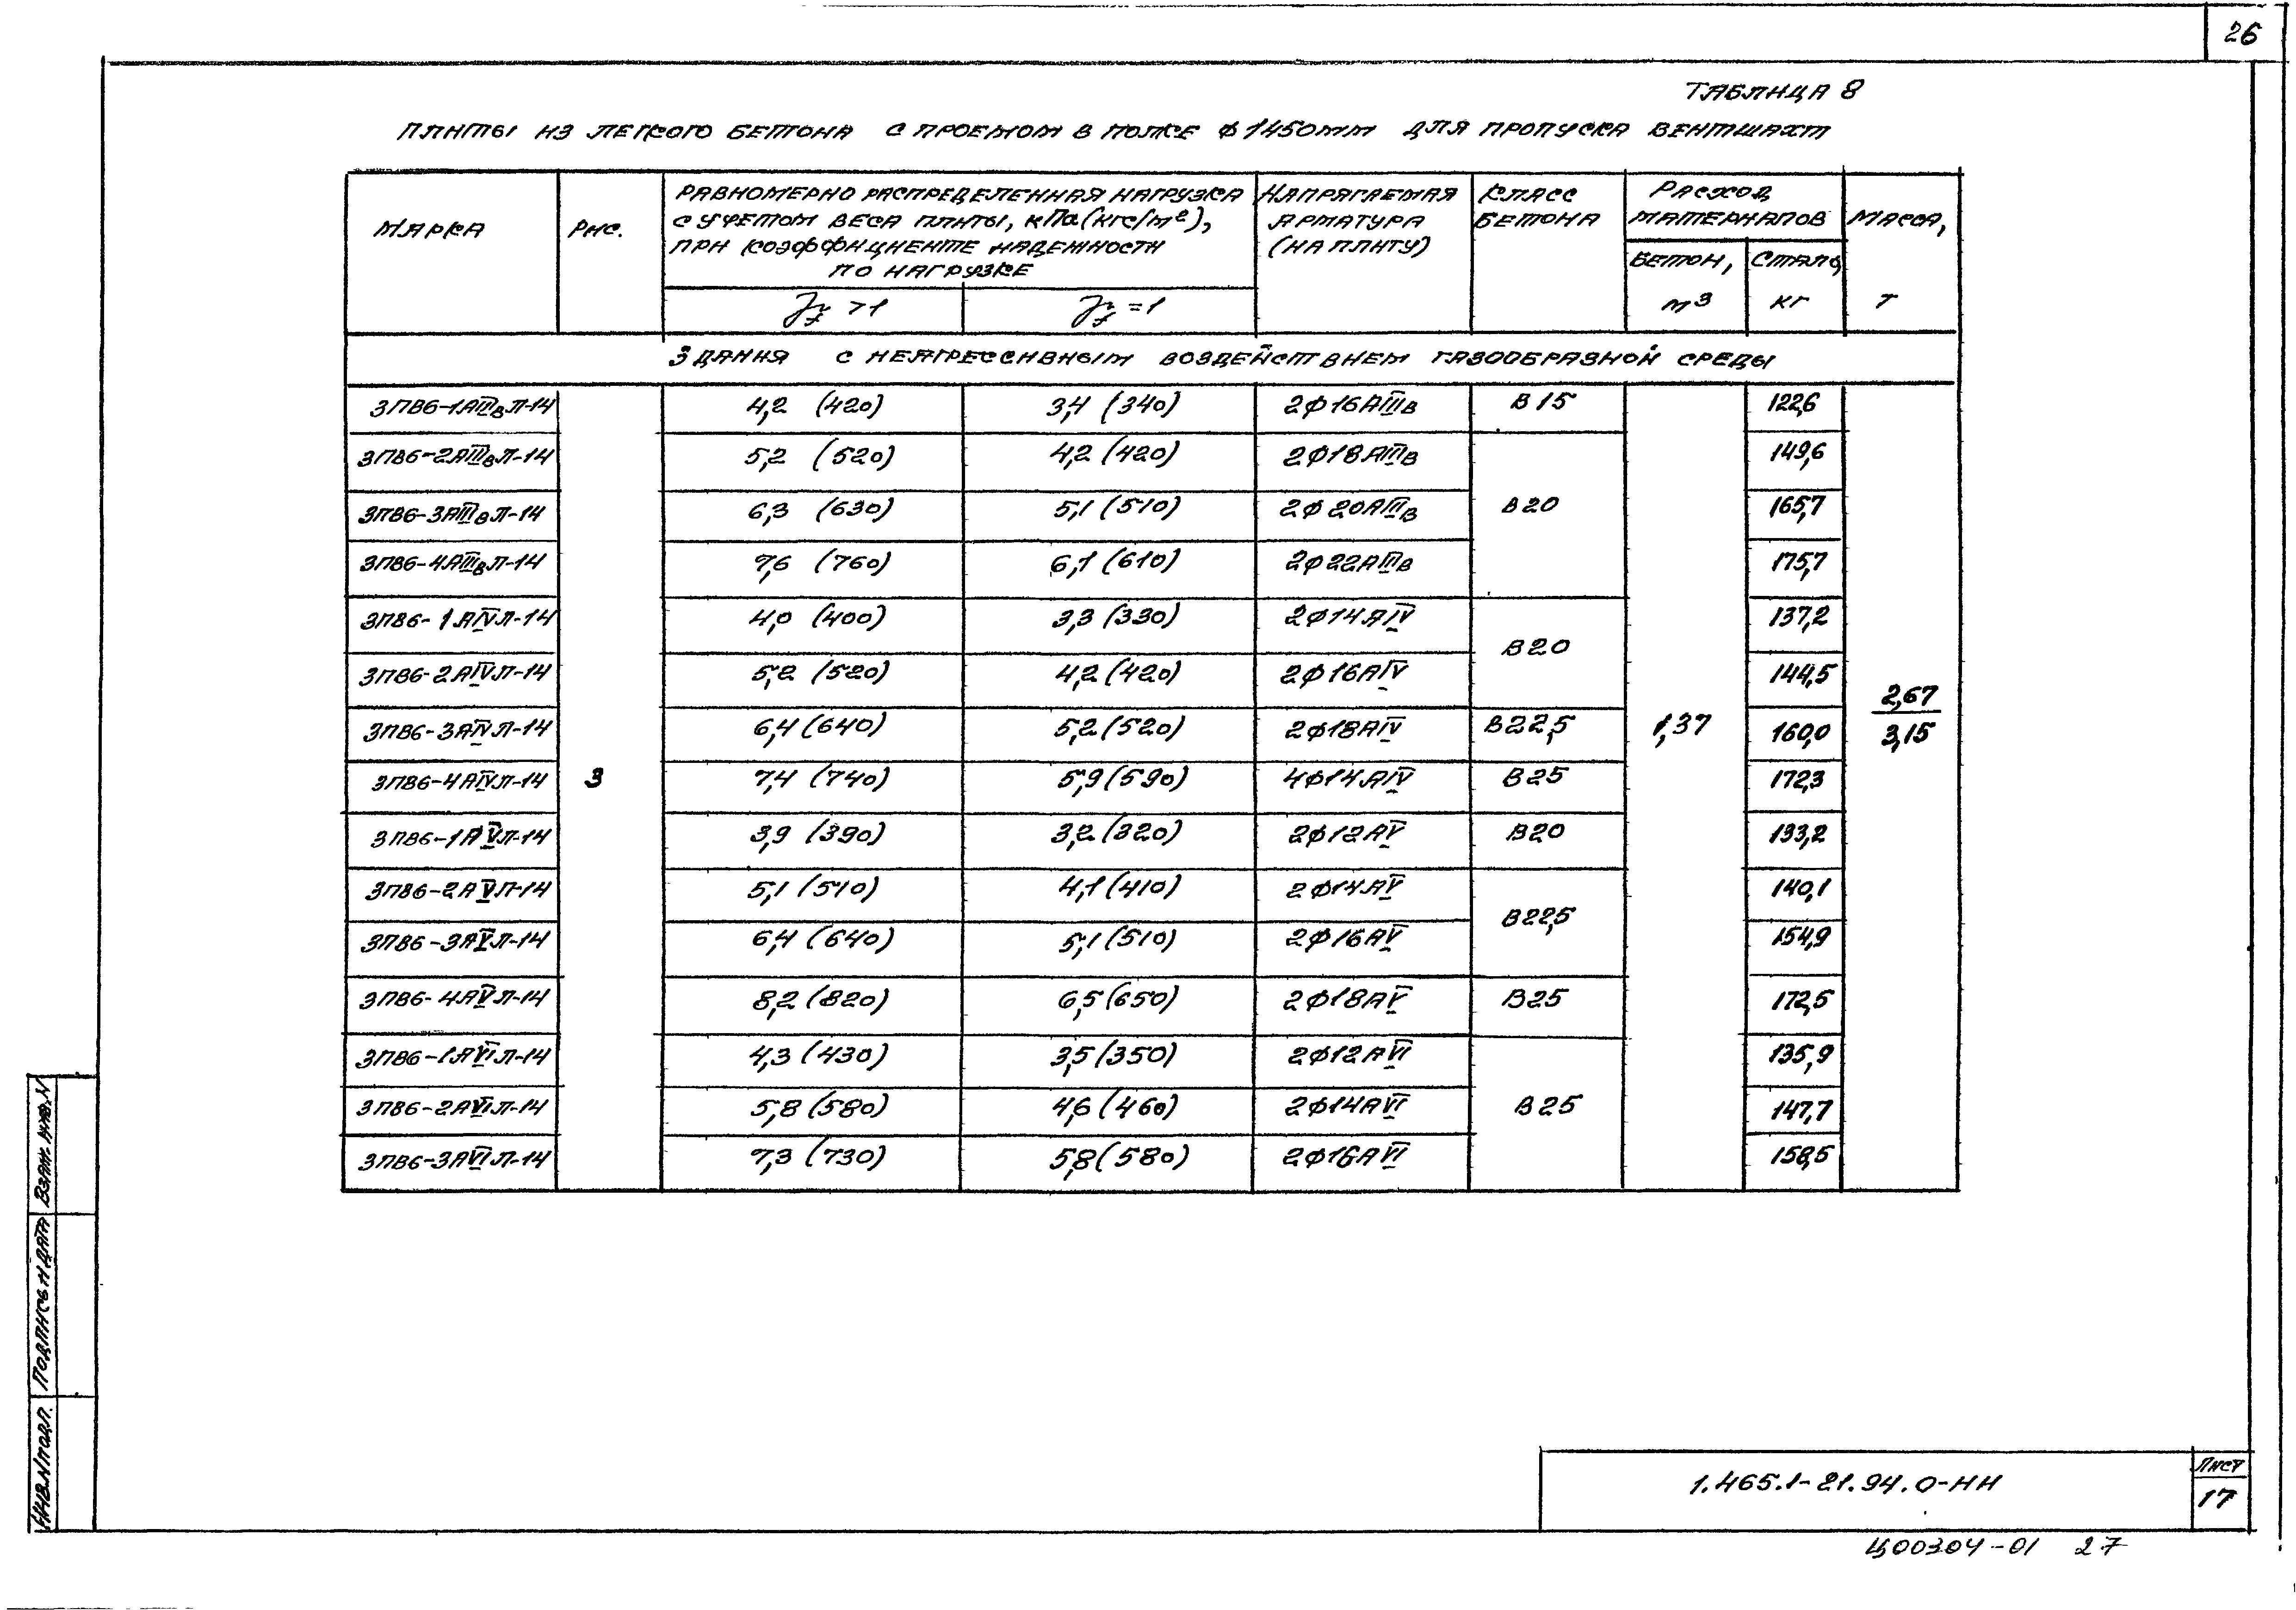 26
ТАБЛИЦА 8
ПЛИТЫ ИЗ ЛЕГКОГО БЕТОНА С ПРОЕМОМ В ПОЛКЕ Ф 1450ММ ДЛЯ ПРОПУСКА ВЕНТШАХТ
МАРКА
РИС.
РАВНОМЕРНО РАСПРЕДЕЛЕННАЯ НАГРУЗКА
С УЧЕТОМ ВЕСА ПЛИТЫ, кПа (кгс/м²),
ПРИ КОЭФФИЦИЕНТЕ НАДЕЖНОСТИ
ПО НАГРУЗКЕ
γf >1
γf =1
НАПРЯГАЕМАЯ
АРМАТУРА
(НА ПЛИТУ)
КЛАСС
БЕТОНА
РАСХОД
МАТЕРИАЛОВ
БЕТОН,
м3
СТАЛЬ,
кг
МАССА,
Т
ЗДАНИЯ С НЕАГРЕССИВНЫМ ВОЗДЕЙСТВИЕМ ГАЗООБРАЗНОЙ СРЕДЫ
3ПВ6-1АIIIвЛ-14 4,2 (420) 3,4 (340) 2Ф16АIIIв В15 122,6
3ПВ6-2АIIIвЛ-14 5,2 (520) 4,2 (420) 2Ф18АIIIв 149,6
3ПВ6-3АIIIвЛ-14 6,3 (630) 5,1 (510) 2Ф20АIIIв В20 165,7
3ПВ6-4АIIIвЛ-14 7,6 (760) 6,1 (610) 2Ф22АIIIв 175,7
3ПВ6-1АIVЛ-14 4,0 (400) 3,3 (330) 2Ф14АIV 137,2
В20
3ПВ6-2АIVЛ-14 5,2 (520) 4,2 (420) 2Ф16АIV 144,5
2,67
3ПВ6-3АIVЛ-14 6,4 (640) 5,2 (520) 2Ф18АIV В22,5 1,37 160,0 3,15
3ПВ6-4АIVЛ-14 3 7,4 (740) 5,9 (590) 4Ф14АIV В25 172,3
3ПВ6-1АVЛ-14 3,9 (390) 3,2 (320) 2Ф12АV В20 133,2
3ПВ6-2АVЛ-14 5,1 (510) 4,1 (410) 2Ф14АV 140,1
В22,5
3ПВ6-3АVЛ-14 6,4 (640) 5,1 (510) 2Ф16АV 154,9
3ПВ6-4АVЛ-14 8,2 (820) 6,5 (650) 2Ф18АV В25 172,5
3ПВ6-1АVIЛ-14 4,3 (430) 3,5 (350) 2Ф12АVI 135,9
3ПВ6-2АVIЛ-14 5,8 (580) 4,6 (460) 2Ф14АVI В25 147,7
3ПВ6-3АVIЛ-14 7,3 (730) 5,8 (580) 2Ф16АVI 158,5
ИНВ.N ПОДЛ.
ПОДПИСЬ И ДАТА
ВЗАМ. ИНВ. N
1.465.1-21.94.0-НИ
ЛИСТ
17
Ц00304-01 27